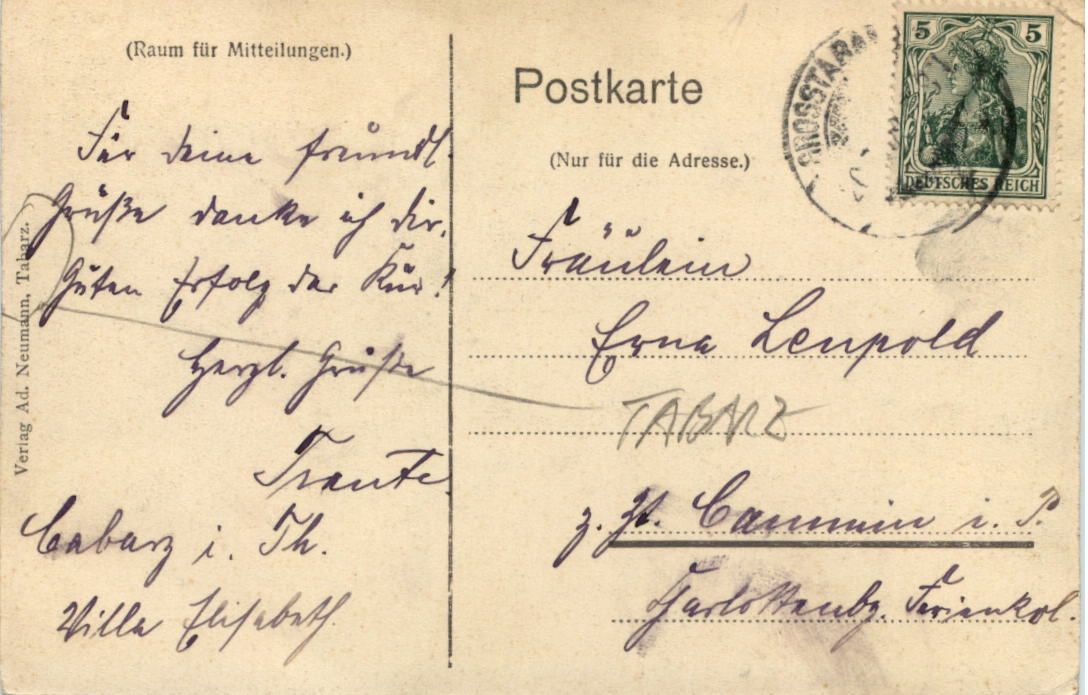 (Raum für Mitteilungen.)
Für deine freundl.
Grüße danke ich dir.
Guten Erfolg der Kur!
Herzl. Grüße
Traute.
Cabarz i. Th.
Villa Elisabeth.
Verlag Ad. Neumann, Tabarz.
Postkarte
(Nur für die Adresse.)
5 5
DEUTSCHES REICH
GROSSTABARZ
Fräulein
Erna Leupold
TABARZ
z. Zt. Cammin i. P.
Charlottenbg. Ferienkol.